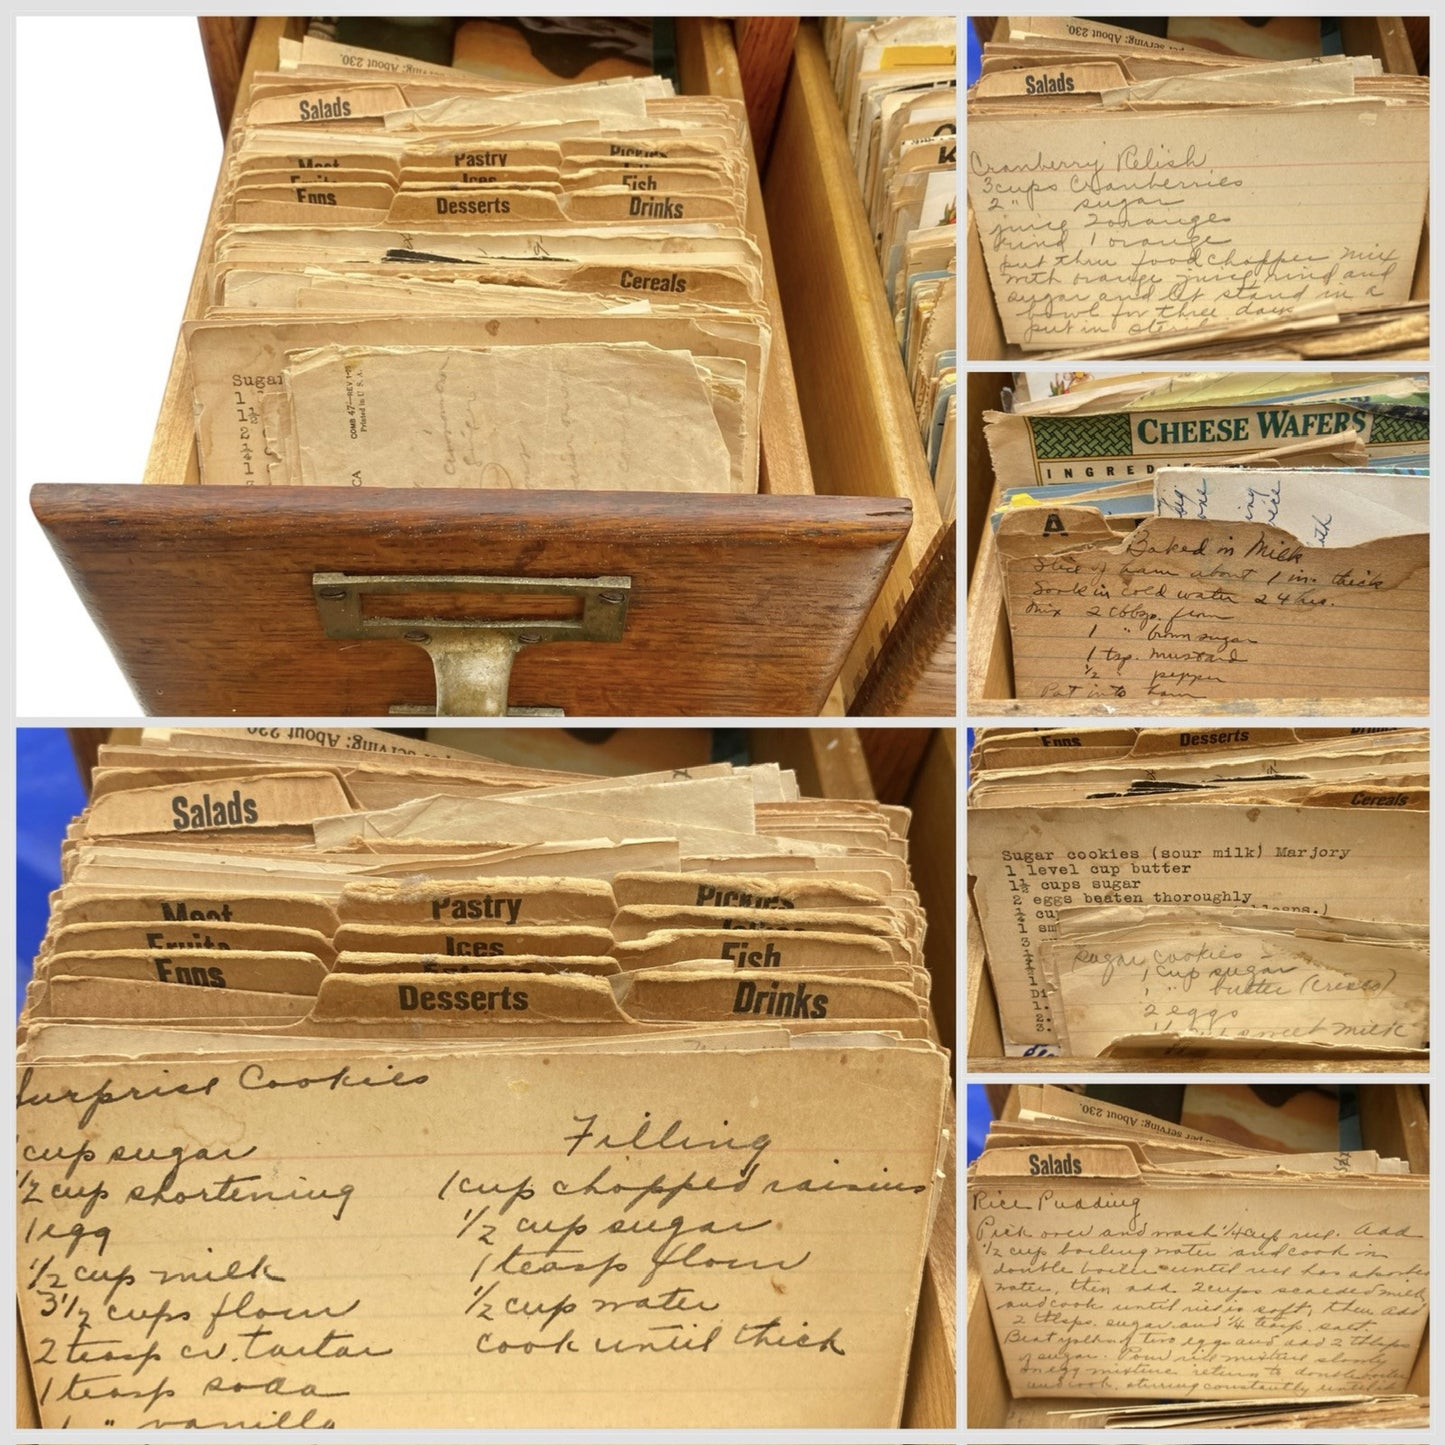 per serving: About 230.
Salads
Meat
Pastry
Pickles
Fruits
Ices
Fish
Eggs
Desserts
Drinks
Cereals
Sugar
COMB 47—REV
Printed in U. S. A.
CA
K
per serving: About 230.
Salads
Cranberry Relish
3 cups Cranberries
2 " sugar
juice 2 oranges
rind 1 orange
put thru food chopper mix
with orange juice, rind and
sugar and let stand in a
bowl for three days
put in
CHEESE WAFERS
INGRED
A
Baked in Milk
Slice of ham about 1 in. thick
Soak in cold water 24 hrs.
Mix 2 tbbsp.
1 " brown sugar
1 tsp. mustard
1/2 " pepper
Put into ham
per serving: About 230
Salads
Meat
Pastry
Pickles
Fruits
Ices
Fish
Eggs
Desserts
Drinks
Surprise Cookies
cup sugar
1/2 cup shortening
1 egg
1/2 cup milk
3 1/2 cups flour
2 teasp cr. tartar
1 teasp soda
1 " vanilla
Filling
1 cup chopped raisins
1/2 cup sugar
1 teasp flour
1/2 cup water
cook until thick
Eggs
Desserts
Drinks
Cereals
Sugar cookies (sour milk) Marjory
1 level cup butter
1½ cups sugar
2 eggs beaten thoroughly
cu
1 sm
Sugar cookies –
1 cup sugar
1 " butter (crisco)
2 eggs
sweet milk
per serving: About 230.
Salads
Rice Pudding
Pick over and wash 1/4 cup rice. Add
1/2 cup boiling water and cook in
double boiler until rice has absorbed
water, then add 2 cups scalded milk
and cook until rice is soft, then add
2 tblsps. sugar and 1/4 teasp. salt.
Beat yolks of two eggs and add 2 tblsps
of sugar. Pour rice mixture slowly
on egg mixture return to double boiler
and cook, stirring constantly until it